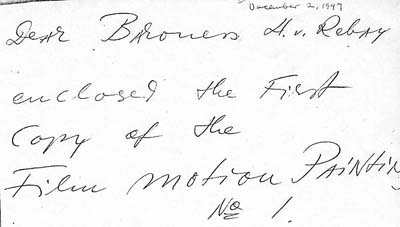 December 2, 1947
Dear Baroness H. v. Rebay
enclosed the First
Copy of the
Film motion Paintin
No 1.